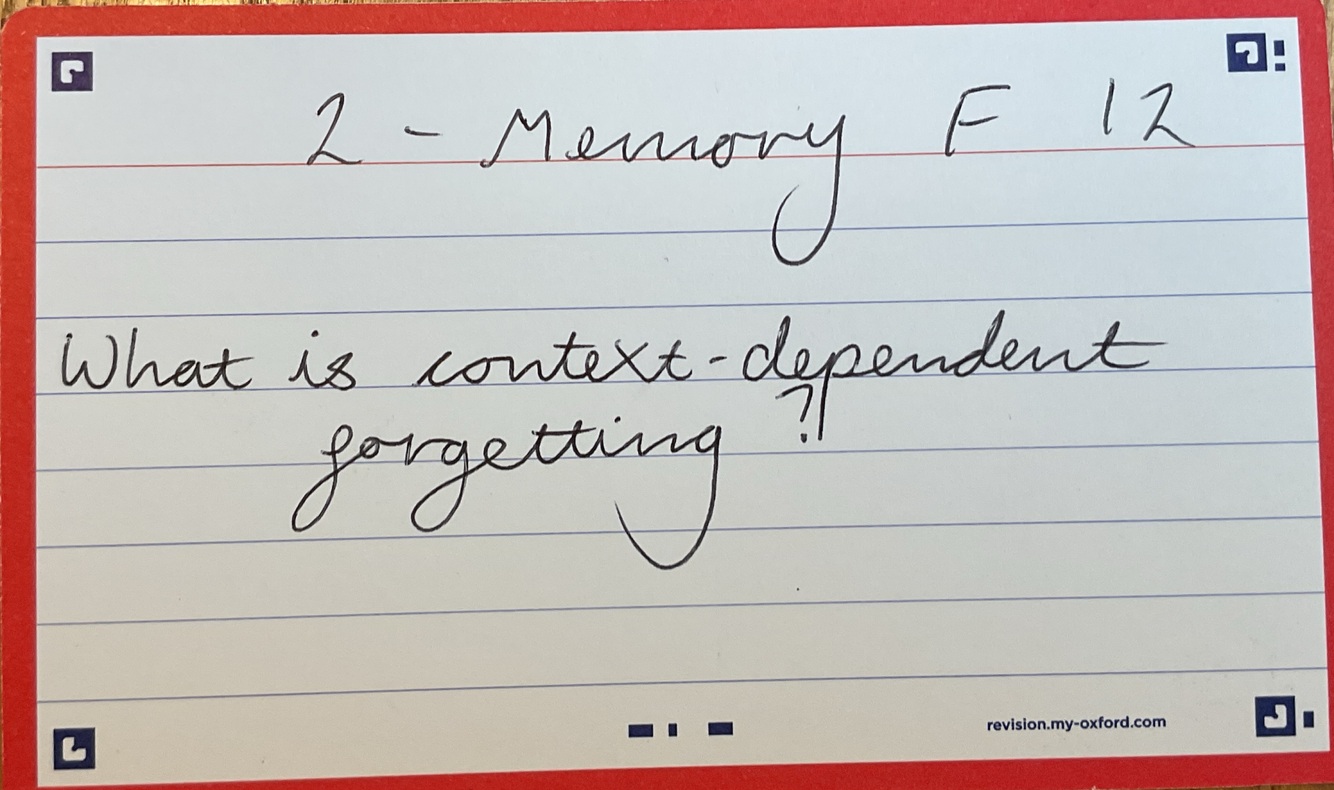 2 - Memory F 12
What is context-dependent
forgetting?
revision.my-oxford.com